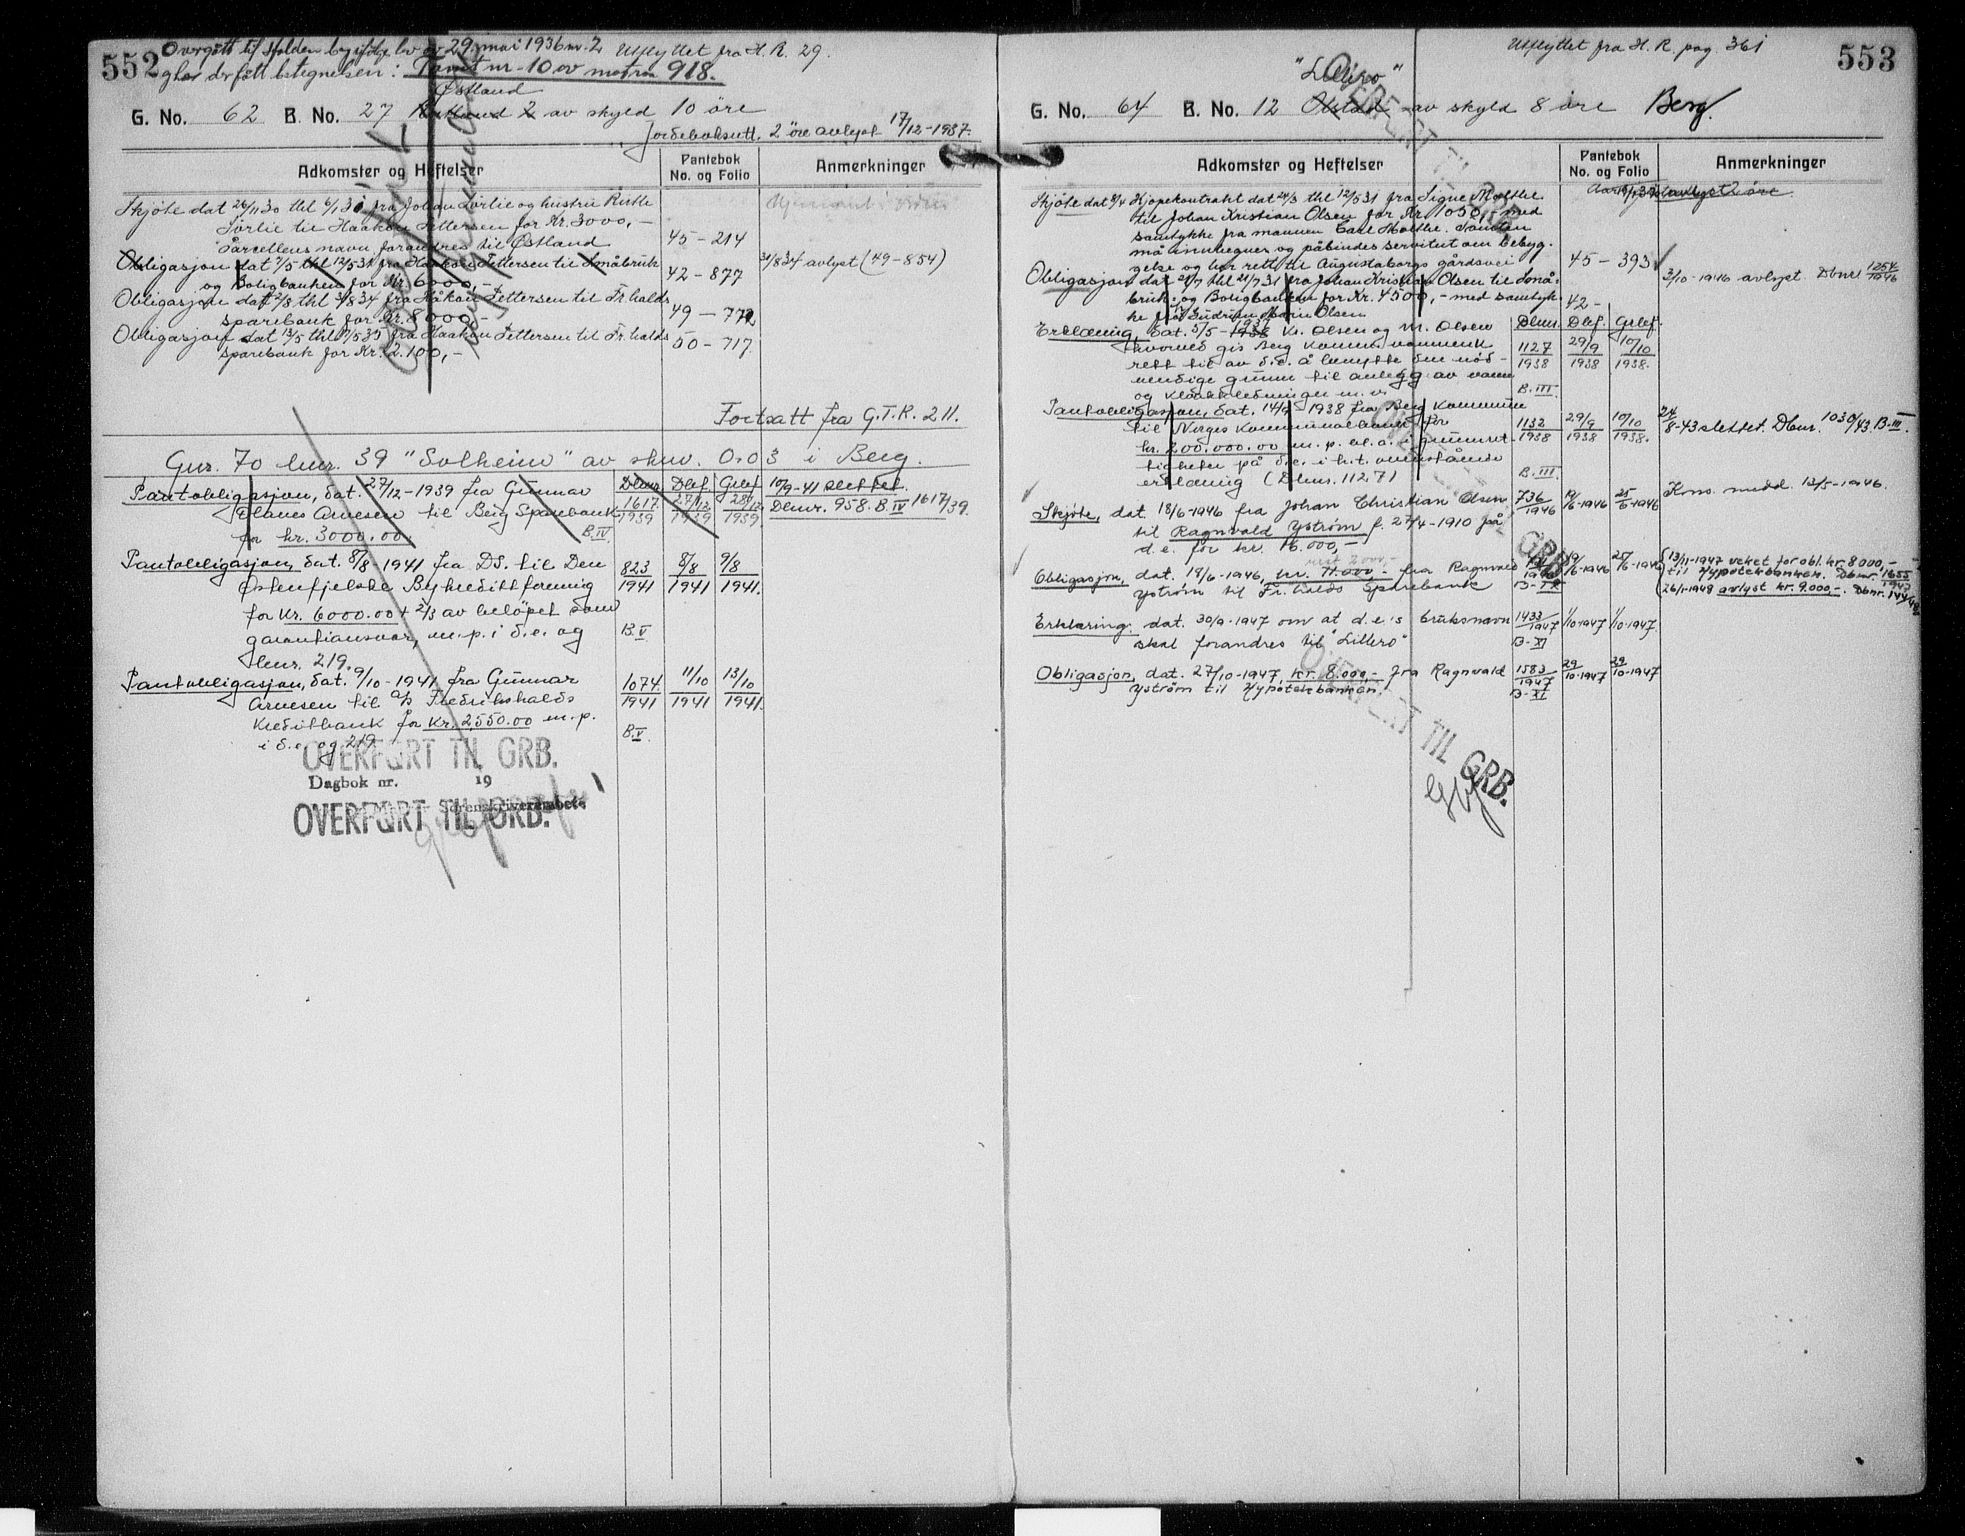 552
Overgått til Halden by ifølge lov av 29. mai 1936 nr. 2 Utflyttet fra H. R. 29.
og har der fått betegnelsen: Tomt nr. 10 av matr. nr. 918.
Østland
G. No. 62 B. No. 27 av skyld 10 öre
Jordeboksutt. 2 öre avlyst 17/12-1937.
Adkomster og Heftelser
Pantebok
No. og Folio
Anmerkninger
Skjöte dat 26/11 30 thl 6/1 30 fra Johan Sörlie og hustru Ruth
Sörlie til Haakon Pettersen for Kr. 3000,-
Parcellens navn forandres til Østland
45 - 214
Obligasjon dat 7/5 thl 12/5 31 fra Haakon Pettersen til Småbruk
og Boligbanken for Kr. 6000,-
42 - 877
31/8 34 avlyst (49-854)
Obligasjon dat 2/8 thl 3/8 34 fra Håkon Pettersen til Fr.halds
sparebank for Kr. 8000,-
49 - 772
Obligasjon dat 13/5 thl 17/5 35 fra Haakon Pettersen til Fr.halds
sparebank for Kr. 2.100,-
50 - 717.
Fortsatt fra G.T.R. 211.
Gnr. 70 bnr. 39 "Solheim" av skm. 0.03 i Berg.
Dbnr. Dbf. Grbf.
Pantobligasjon, dat. 27/12-1939 fra Gunnar
Arnesen til Berg Sparebank
for kr. 3000.00.
1617/1939 27/12/1939 28/12/1939
B.IV
10/9-41 slettet.
Dbnr. 958. B.IV 1617/39.
Pantobligasjon, dat. 8/8 1941 fra DS. til Den
Østenfjelske Bykredittforening
for kr. 6000.00 + 2/3 av belöpet som
garantiansvar, m.p. i d.e. og
bnr. 219.
823/1941 8/8/1941 9/8/1941.
B.V
Pantobligasjon, dat. 9/10-1941 fra Gunnar
Arnesen til a/s Fredrikshalds
Kreditbank for kr. 2,550.00 m.p.
i d.e. og 219.
1074/1941 11/10/1941 13/10/1941.
B.V.
OVERFØRT TIL GRB.
Dagbok nr. 19
Sorenskriverembete
OVERFØRT TIL GRB.
553
Utflyttet fra H. R. pag. 361
"Lillero"
G. No. 64 B. No. 12 Olstad av skyld 8 öre Berg.
Adkomster og Heftelser
Pantebok
No. og Folio
Anmerkninger
avlyst 2 öre
Skjöte dat Kjöpekontrakt dat 24/3 thl 12/5 31 fra Signe Molthe
til Johan Kristian Olsen for Kr. 1050,- med
samtykke fra mannen Carl Molthe. Tomten
må innhegnes og påbindes servitut om bebyg-
gelse og har rett til Augustaborgs gårdsvei
45 - 393
Obligasjon dat 20/7 thl 21/7 31 fra Johan Kristian Olsen til Små-
bruk og Boligbanken for Kr. 4500,- med samtyk-
ke fra Olsen
42 -
3/10-1946 avlyst Dbnr 1254/1946
Dbnr. Dbf. Grbf.
Erklæring, dat. 5/5-1938 Kr. Olsen og M. Olsen
hvorved gis Berg kommunevannverk
rett til av d.e. å benytte den nöd-
vendige grunn til anlegg av vann
og kloakkledninger m.v.
1127/1938 29/9/1938 10/10/1938.
B.III
Pantobligasjon, dat. 14/9 1938 fra Berg kommune
til Norges Kommunalbank for
kr. 200.000.00 m.p. bl.a. i grunnret-
tigheter på d.e. i h.t. ovenstående
erklæring (Dbnr. 1127)
1132/1938 29/9/1938 10/10/1938.
B.III
24/8-43 slettet. Dbnr. 1030/43. B.III.
Skjöte, dat. 18/6-1946 fra Johan Christian Olsen
til Ragnvald Yström f. 27/4-1910 på
d.e. for kr. 16.000,-
736/1946 19/6-1946 25/6-1946
Kons. medd. 13/5-1946.
Obligasjon, dat. 18/6-1946, kr. 11.000.- fra Ragnvald
Yström til Fr.halds Sparebank
19/6-1946 25/6-1946
13/11-1947 veket for obl. kr. 8000,-
til Hypotekbanken. Dbnr. 1655/1947
26/1-1948 avlyst kr. 9.000,-. Dbnr. 144/48
Erklæring, dat. 30/9-1947 om at d.e.'s bruksnavn
skal forandres til "Lillero"
1433/1947 1/10-1947 1/10-1947.
B-XI
Obligasjon, dat. 27/10-1947, kr. 8.000,- fra Ragnvald
Yström til Hypotekbanken.
1583/1947 29/10-1947 29/10-1947
B-XI
OVERFØRT TIL GRB.
OVERFØRT TIL GRB.
OVERFØRT TIL GRB.